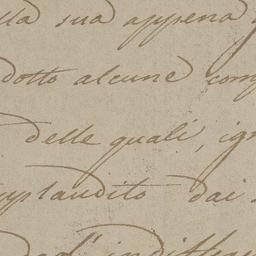 lla sua appena
dotto alcune comp
delle quali, ign
applaudito dai
ad' indiffer